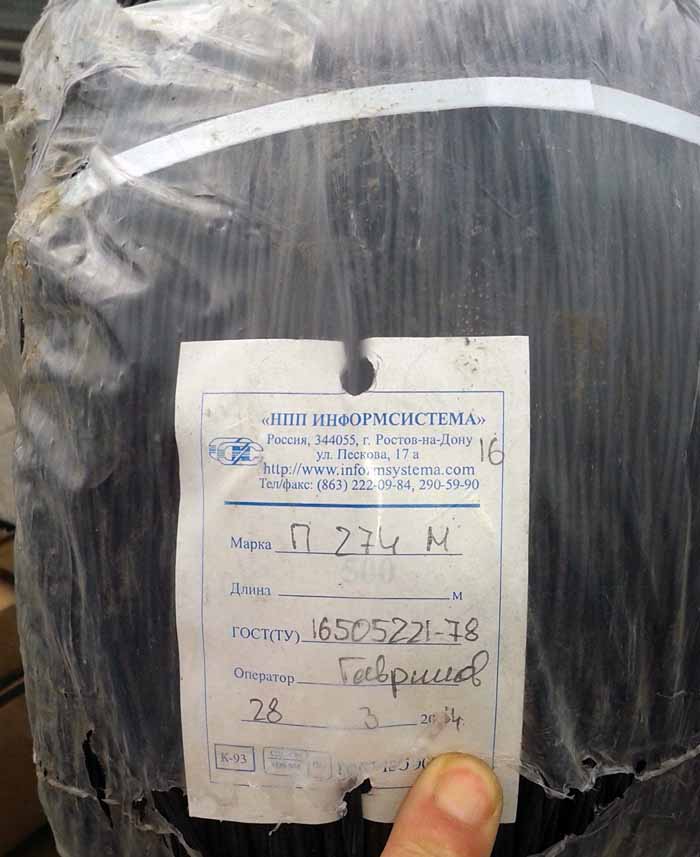 «НПП ИНФОРМСИСТЕМА»
Россия, 344055, г. Ростов-на-Дону
ул. Пескова, 17 а
16
http://www.informsystema.com
Тел/факс: (863) 222-09-84, 290-59-90
Марка П 274 М
500
Длина м
ГОСТ(ТУ) 16505221-78
Оператор
28 3
К-93